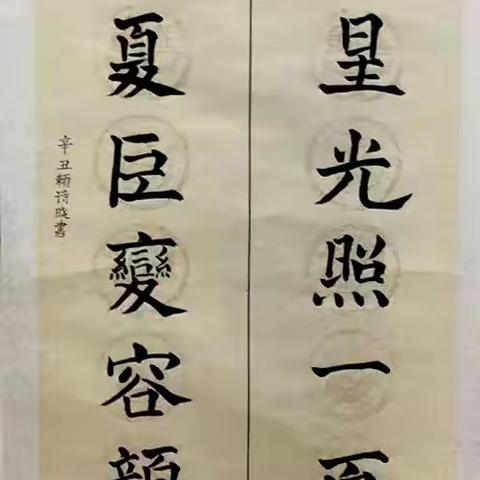 星光照一
夏巨變容顏
辛丑赖诗晟書